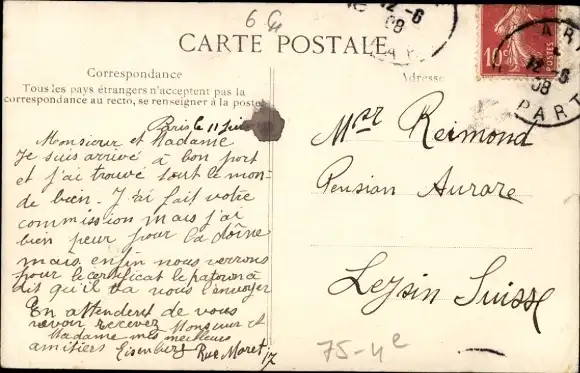 6
CARTE POSTALE
Correspondance
Adresse
Tous les pays étrangers n'acceptent pas la
correspondance au recto, se renseigner à la poste
12-6
08
PAR
10c
POSTES
PARIS
12-6
08
DEPART
Paris le 11 Juin
Monsieur et Madame
Je suis arrivé à bon port
et j'ai trouvé tout le mon-
de bien. J'ai fait votre
commission mais j'ai
bien peur pour la doîne
mais enfin nous verrons
pour le certificat le patron a
dit qu'il va vous l'envoyer
En attendent de vous
revoir recevez Monsieur et
Madame mes meilleurs
amitiers Eisenburg Rue Moret 17
Mgr Reimond
Pension Aurore
Leysin Suisse
75-4e